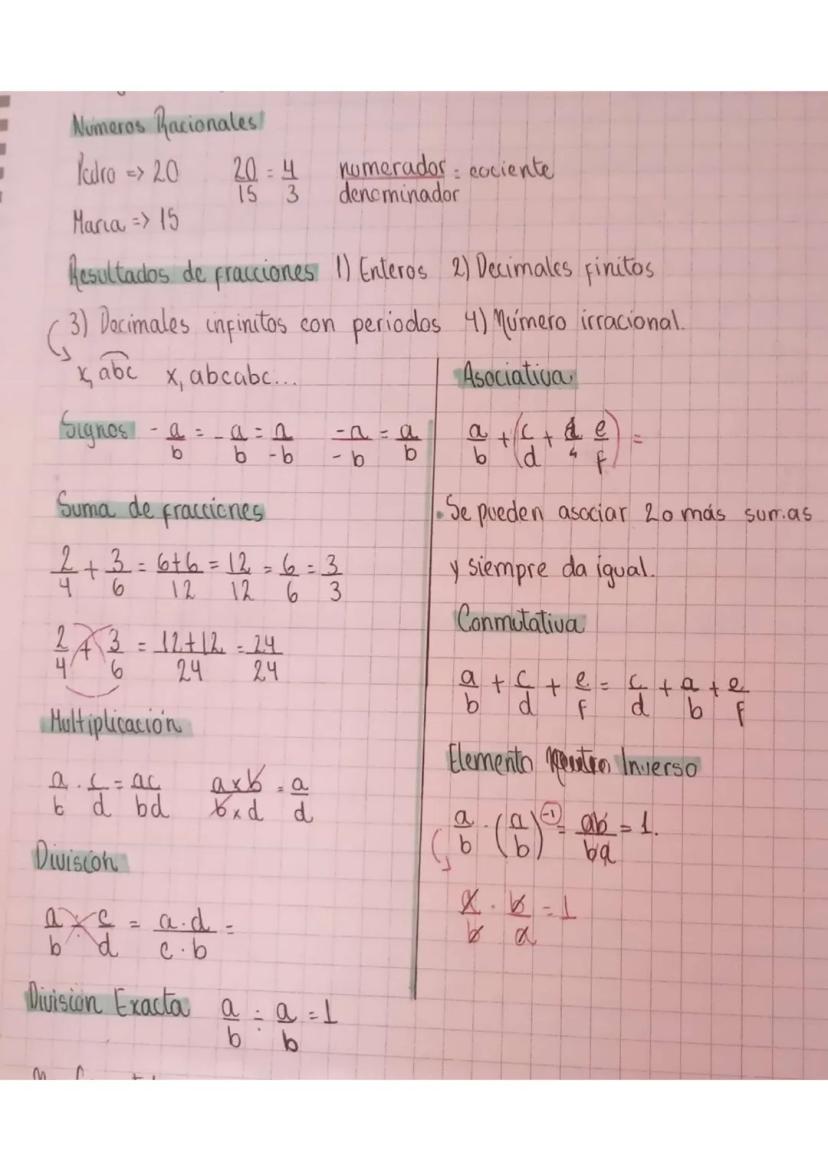 Números Racionales
Pedro => 20    20/15 = 4/3    numerador/denominador = cociente
Maria => 15
Resultados de fracciones 1) Enteros 2) Decimales finitos
3) Decimales infinitos con periodos 4) Número irracional.
x, abc    x, abcabc...
Signos    - a/b = -a/b = a/-b    -a/-b = a/b
Suma de fracciones
2/4 + 3/6 = 6+6/12 = 12/12 = 6/6 = 3/3
2/4 + 3/6 = 12+12/24 = 24/24
Multiplicación
a/b · c/d = ac/bd    axb/bxd = a/d
División
a/b ÷ c/d = a·d/c·b =
División Exacta    a/b ÷ a/b = 1
Asociativa
a/b + (c/d + e/f) =
• Se pueden asociar 2 o más sumas
y siempre da igual.
Conmutativa
a/b + c/d + e/f = c/d + a/b + e/f
Elemento Neutro Inverso
a/b · (a/b)^-1 = ab/ba = 1.
a/b · b/a = 1